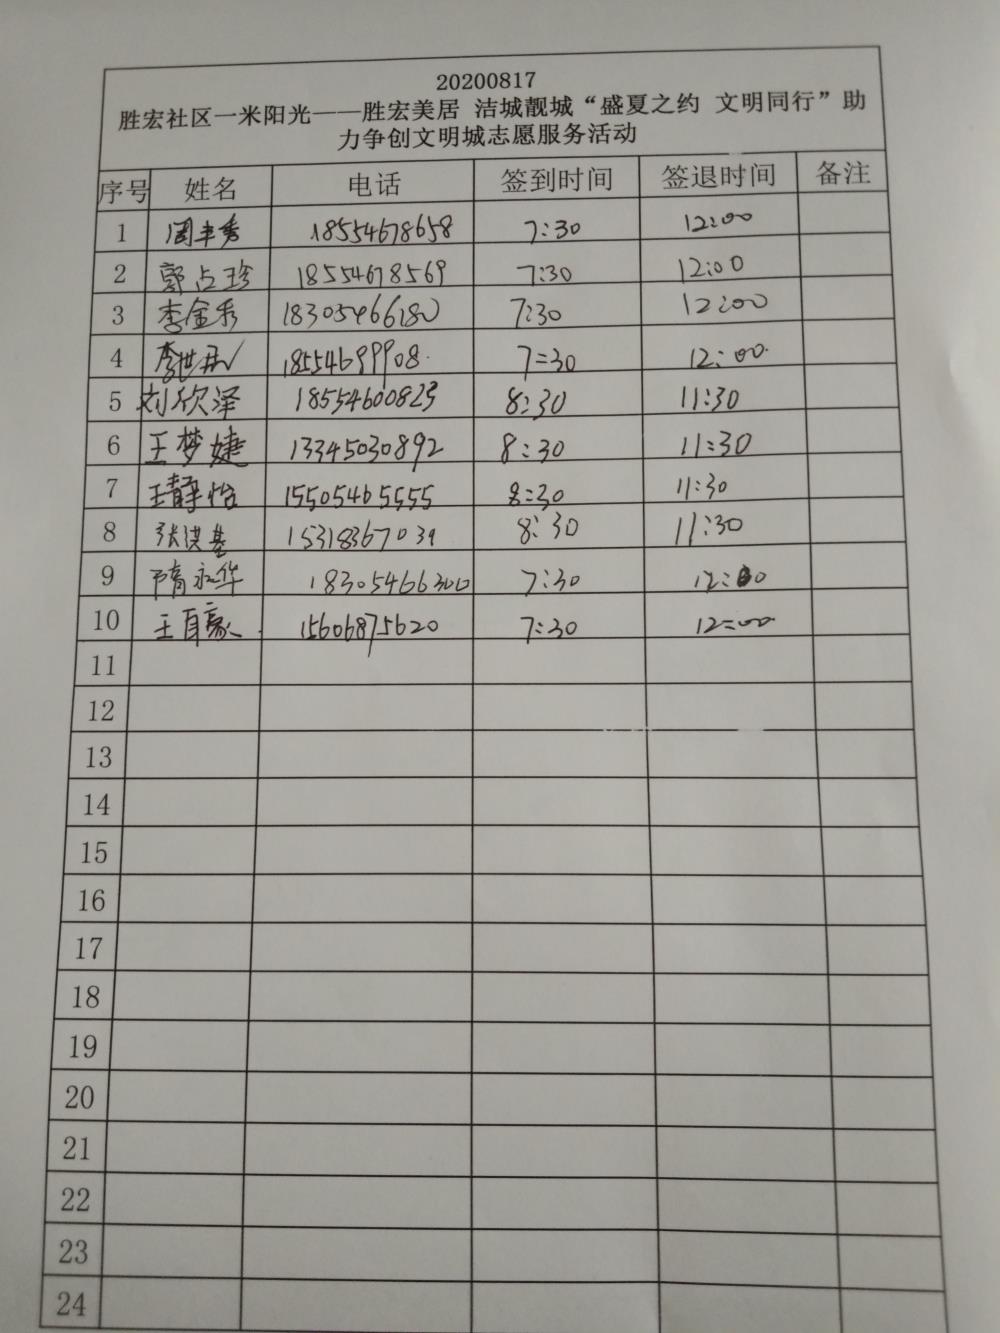 20200817
胜宏社区一米阳光——胜宏美居 洁城靓城“盛夏之约 文明同行”助
力争创文明城志愿服务活动
序号 姓名 电话 签到时间 签退时间 备注
1 周丰秀 18554678658 7:30 12:00
2 郭占珍 18554678569 7:30 12:00
3 李金秀 18305466180 7:30 12:00
4 李世 18554699908 7:30 12:00
5 刘欣泽 18554600823 8:30 11:30
6 王梦婕 13345030892 8:30 11:30
7 王静怡 15505465555 8:30 11:30
8 张洪基 15318367039 8:30 11:30
9 隋永华 18305466300 7:30 12:00
10 王自豪 15606875620 7:30 12:00
11
12
13
14
15
16
17
18
19
20
21
22
23
24